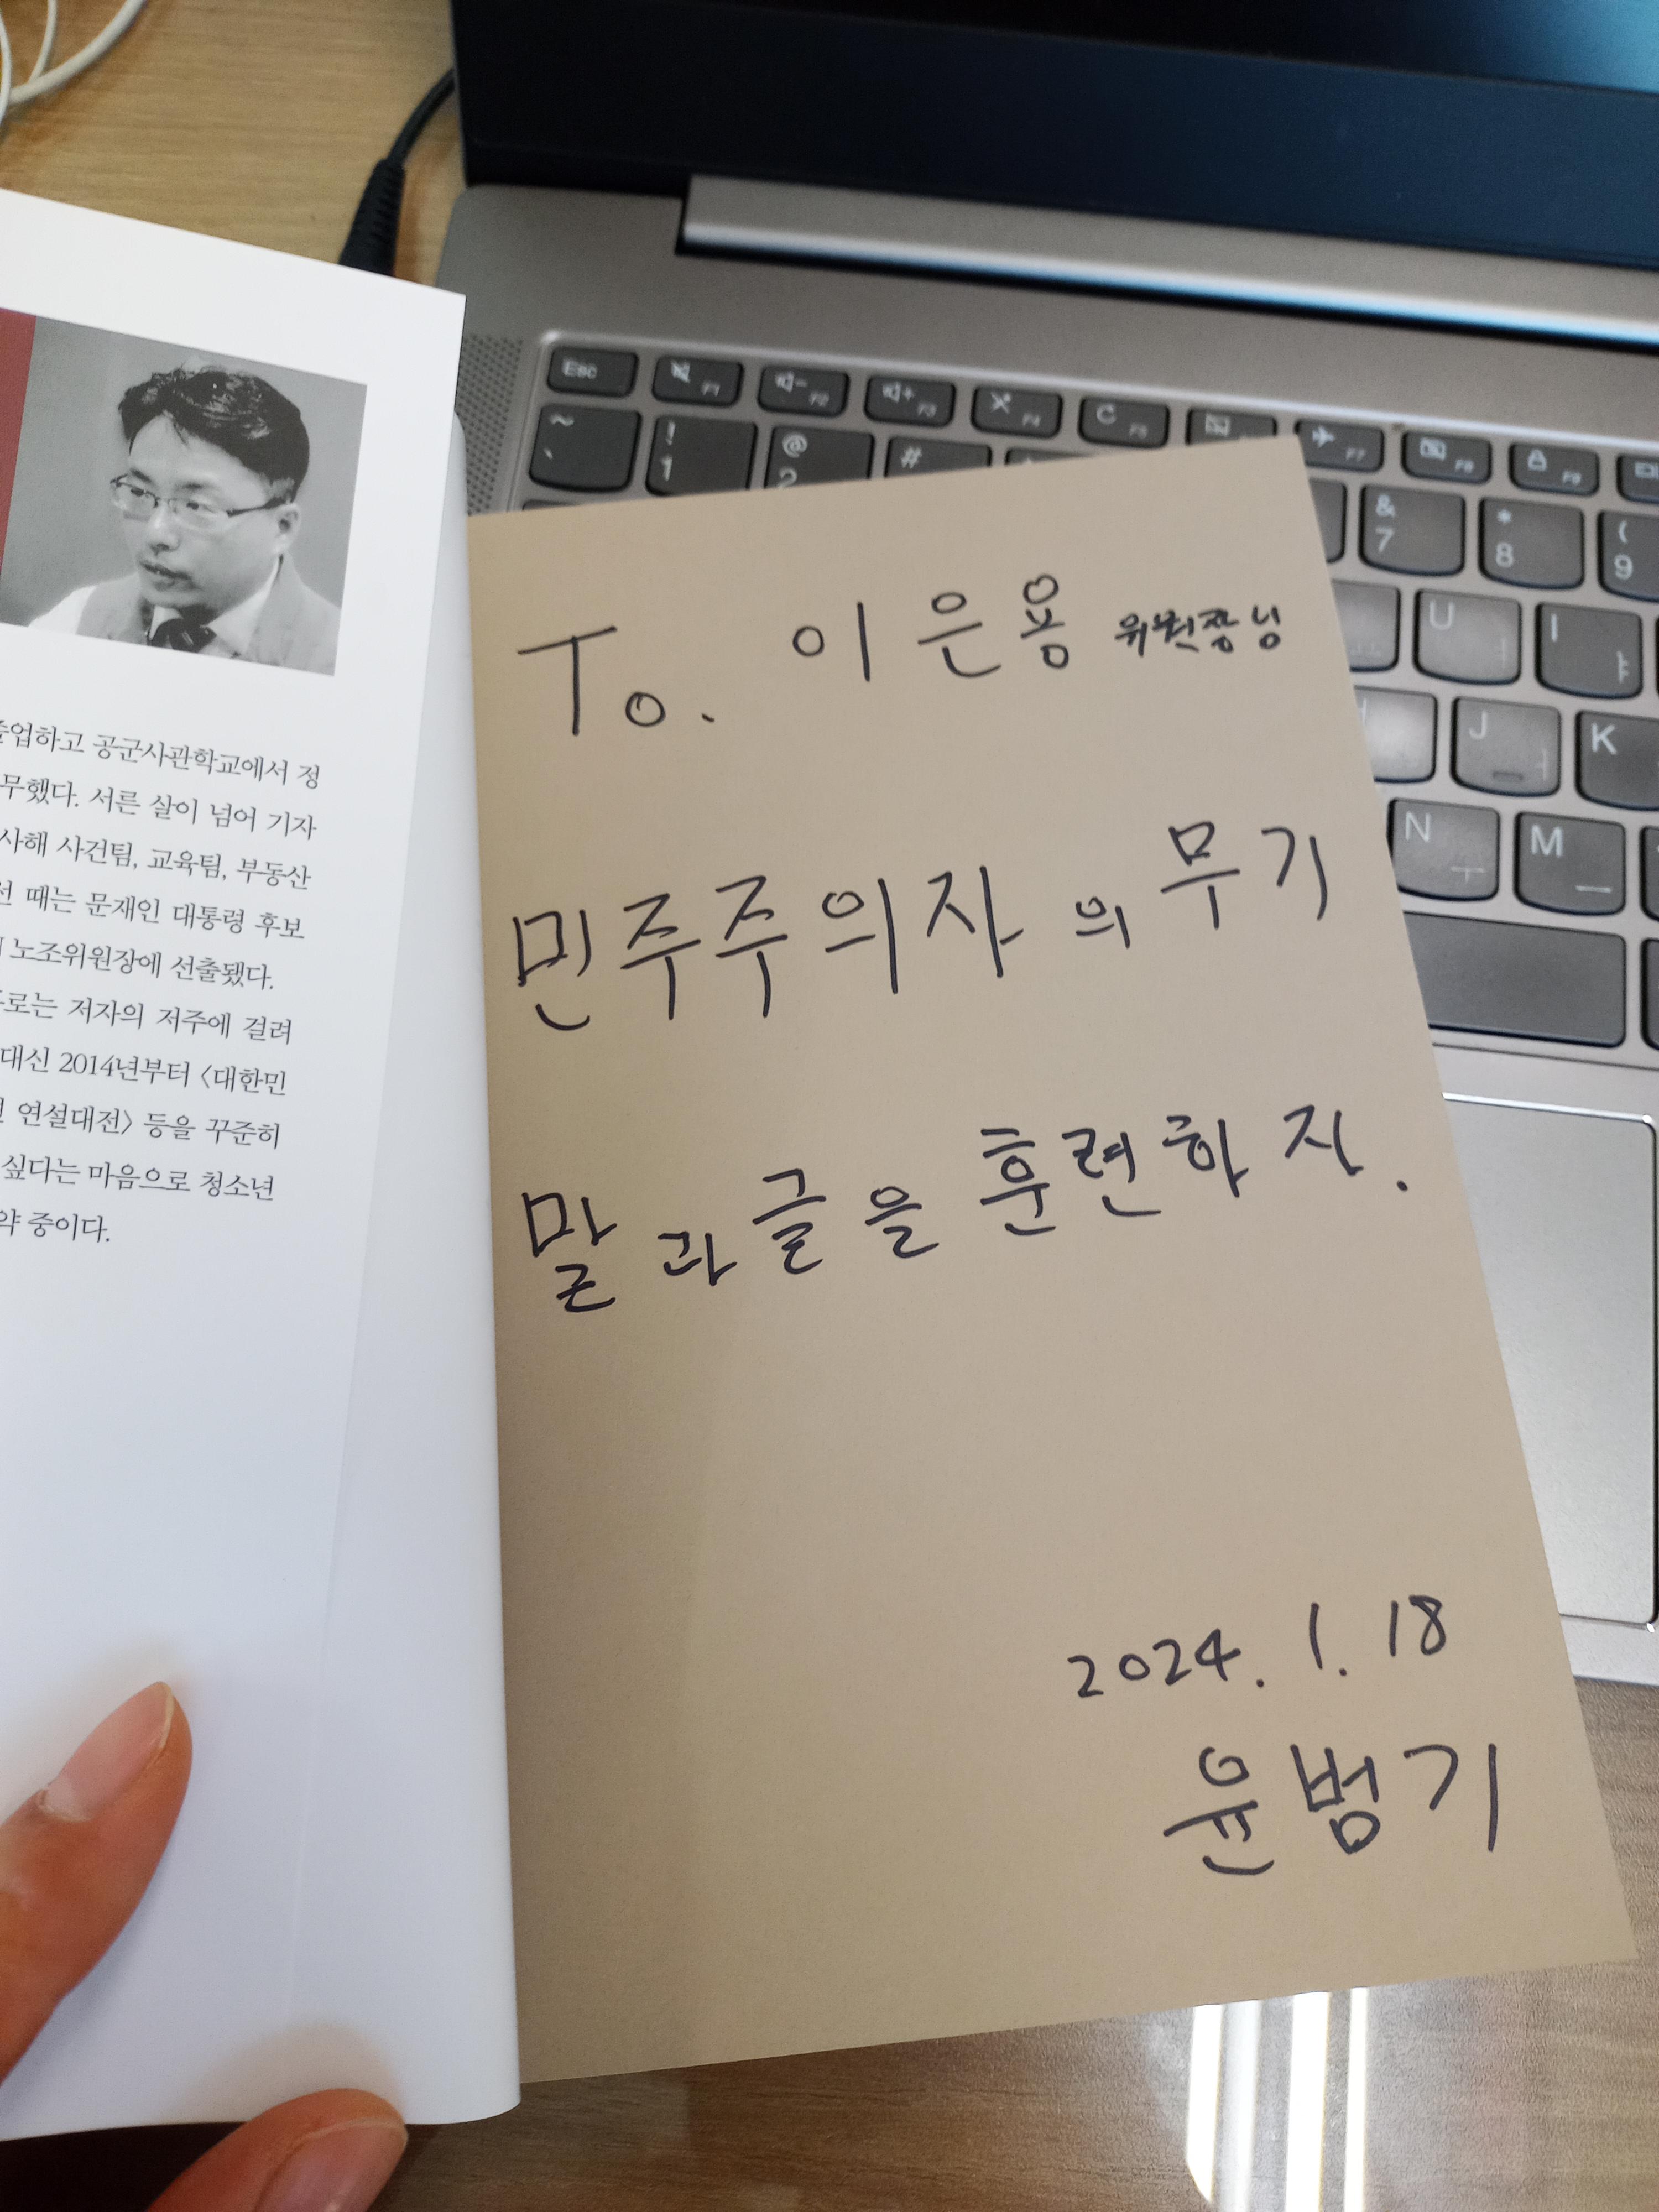 졸업하고 공군사관학교에서 정
무했다. 서른 살이 넘어 기자
사해 사건팀, 교육팀, 부동산
때는 문재인 대통령 후보
노조위원장에 선출됐다.
로는 저자의 저주에 걸려
대신 2014년부터 〈대한민
연설대전〉 등을 꾸준히
싶다는 마음으로 청소년
약 중이다.
To. 이은용 위원장님
민주주의자의 무기
말과 글을 훈련하자.
2024. 1. 18
윤범기
Esc F1 F2 F3 F4 F5 F7 F8 F9
~ ` ! 1 @ 2 # & 7 * 8 ( 9
U ㅕ I ㅑ
J ㅓ K
N ㅜ M ㅡ